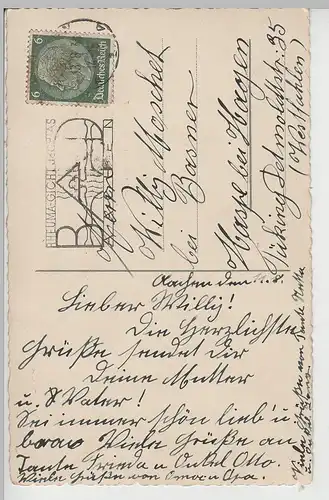 6 Deutsches Reich 6
RHEUMA-GICHT-ISCHIAS
BAD
AACHEN
Willy Moschet
bei Basner
Haspe bei Hagen
35
(Westfahlen)
Aachen den
Lieber Willy!
Die Herzlichste
Grüsse sendet dir
Deine Mutter
u. Vater!
Sei immer schön lieb' u.
brav Viele Grüsse an
Tante Frieda u Onkel Otto.
Viele Grüsse von Oma u Opa.
Viele Grüsse von Tante